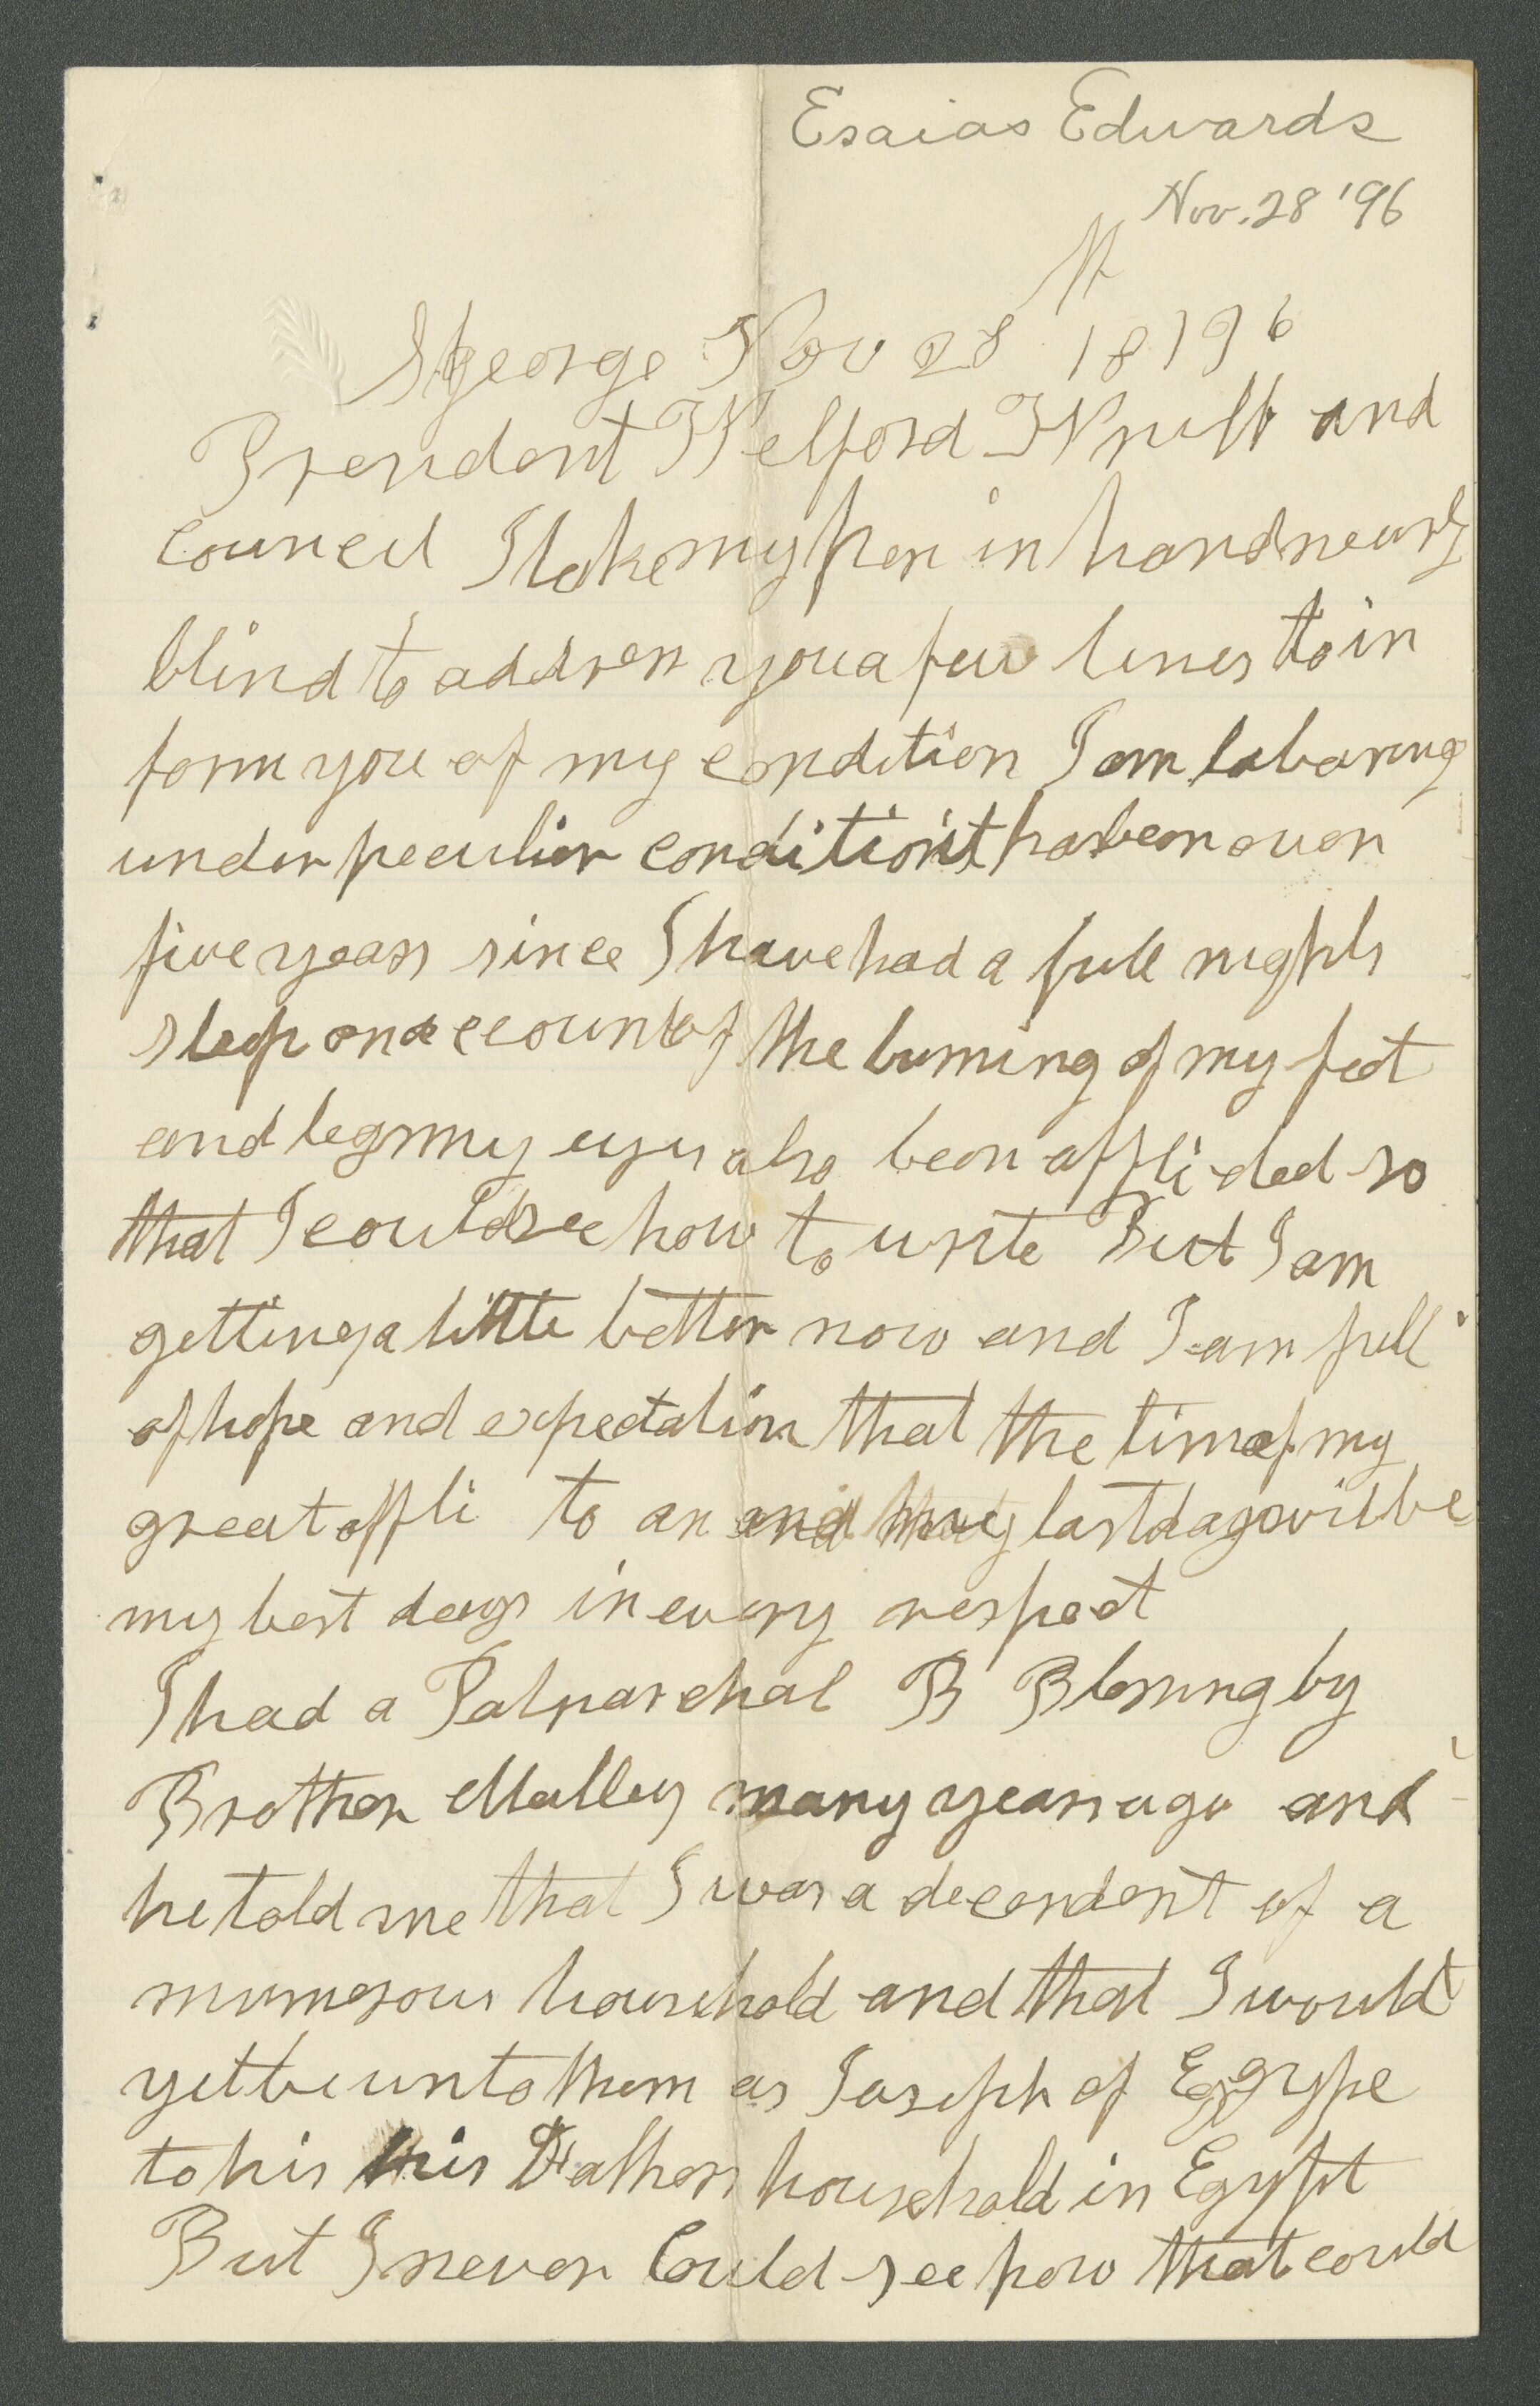 Esaias Edwards
Nov. 28 '96
St
St george Nov 28 1896
Presedent Welford Wruff and
Council I take my pen in hand nearly
blind to address you a few lines to in
form you of my condition I am labaring
under peculier condition it has been over
five years since I have had a full nights
sleep on account of the burning of my feet
and legs my eyes also been afflicted so
that I could see how to write But I am
getting a little better now and I am full
of hope and expectation that the time of my
great affli to an and my last days wil be
my best days in every respect
I had a Patriarchal B Blessing by
Brother Mallery many years ago and
he told me that I was a decendent of a
numerous household and that I would
yet be unto them as Joseph of Egype
to his his Fathers household in Egypt
But I never Could see how that could